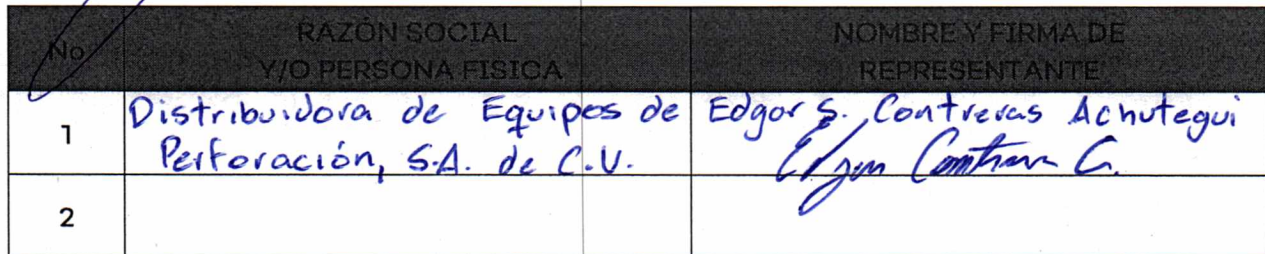 No
RAZÓN SOCIAL
Y/O PERSONA FISICA
NOMBRE Y FIRMA DE
REPRESENTANTE
1
Distribuidora de Equipos de
Perforación, S.A. de C.V.
Edgar S. Contreras Achutegui
2